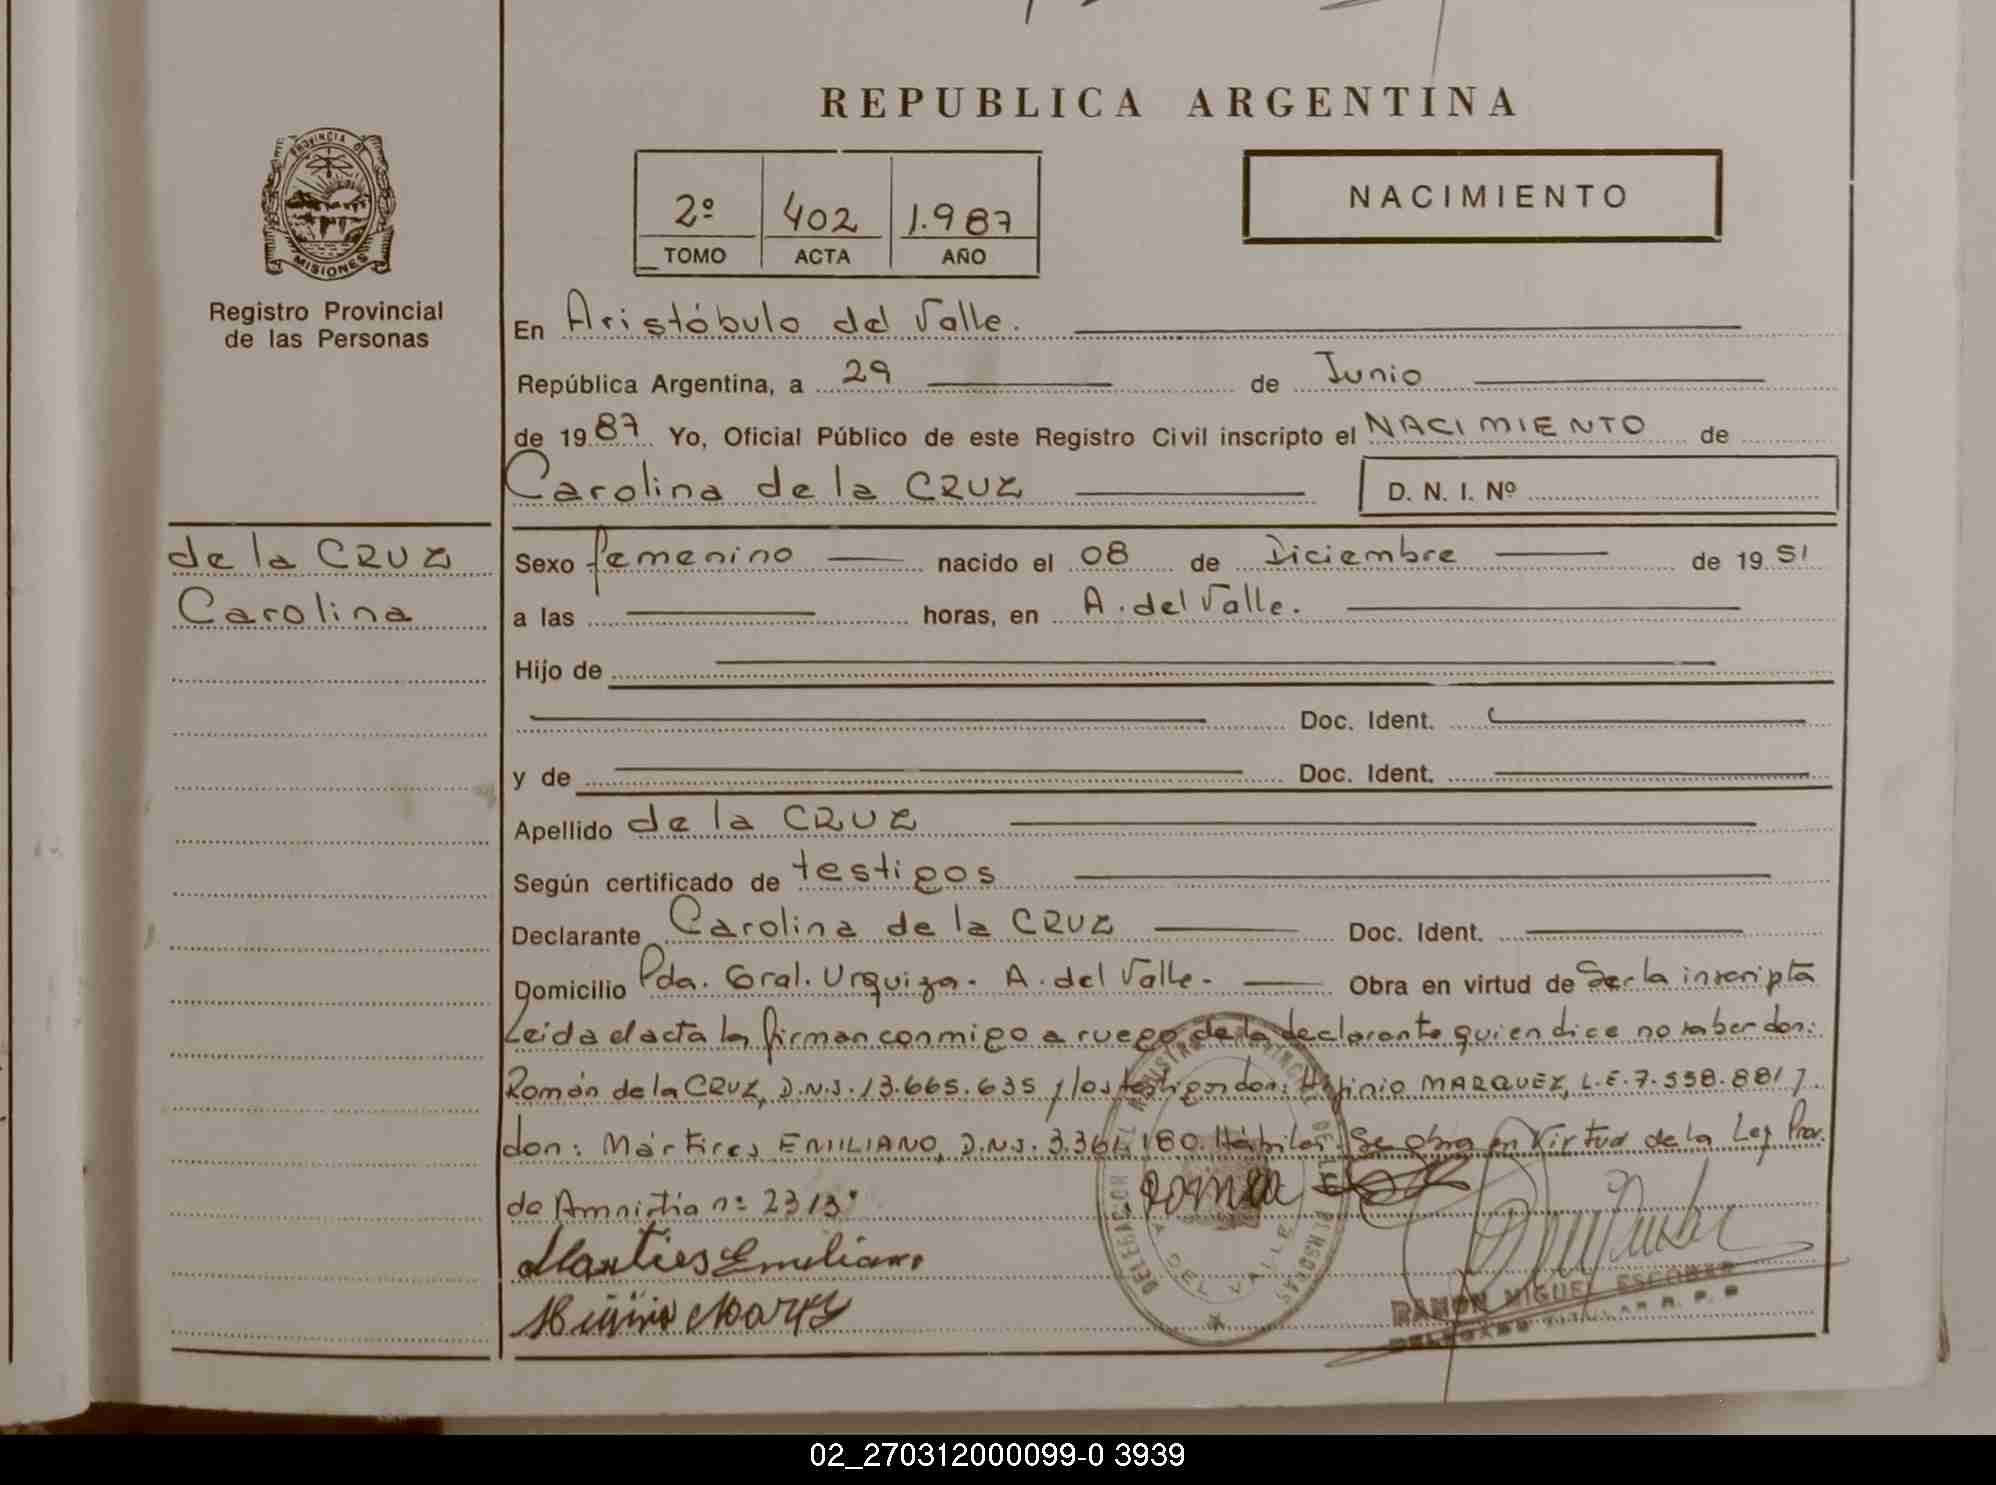 REPUBLICA ARGENTINA
PROVINCIA D
MISIONES
Registro Provincial
de las Personas
2º 402 1.987
TOMO ACTA AÑO
NACIMIENTO
En Aristóbulo del Valle.
República Argentina, a 29 de Junio
de 1987 Yo, Oficial Público de este Registro Civil inscripto el NACIMIENTO de
Carolina de la CRUZ D. N. I. Nº
de la CRUZ
Carolina
Sexo femenino nacido el 08 de Diciembre de 1951
a las horas, en A. del Valle.
Hijo de
Doc. Ident.
y de Doc. Ident.
Apellido de la CRUZ
Según certificado de testigos
Declarante Carolina de la CRUZ Doc. Ident.
Domicilio Pda. Gral. Urquiza. A. del Valle. Obra en virtud de Ser la inscripta
Leida el acta la firman conmigo a ruego de la declarante quien dice no saber don:
Román de la CRUZ, D.N.I. 13.665.635 y los testigos don: Higinio MARQUEZ, L.E. 7.558.881 y
don: Mártires EMILIANO, D.N.I. 3.361.180. Hábiles. Se obra en Virtud de la Ley Prov.
de Amnistía nº 2313.
Roman
Martires Emiliano
Higinio Marqz
DELEGACION REGISTRO PROVINCIAL DE LAS PERSONAS
A. DEL VALLE
RAMON MIGUEL ESCOBAR
DELEGADO TITULAR R. P. P.
02_270312000099-0 3939